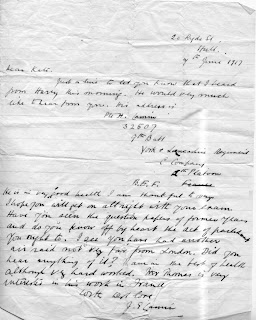 Hyde St
7th June 1917
Dear Kate.
Just a line to let you know that I heard
from Harry this morning. He would very much
like to hear from you. His address is
Pte H.
32507
7th Batt
York & Lancaster Regiment
C Company
Platoon
B.E.F.
France
He is in very good health I am thankful to say.
I hope you will get on all right with your exam.
Have you seen the question papers of former years
and do you know off by heart the list of
You ought to. I see you have had another
air raid not very far from London. Did you
hear anything of it? I am in the best of health
although very hard worked. Mr Thomas is very
interested in his work in France.
With best love